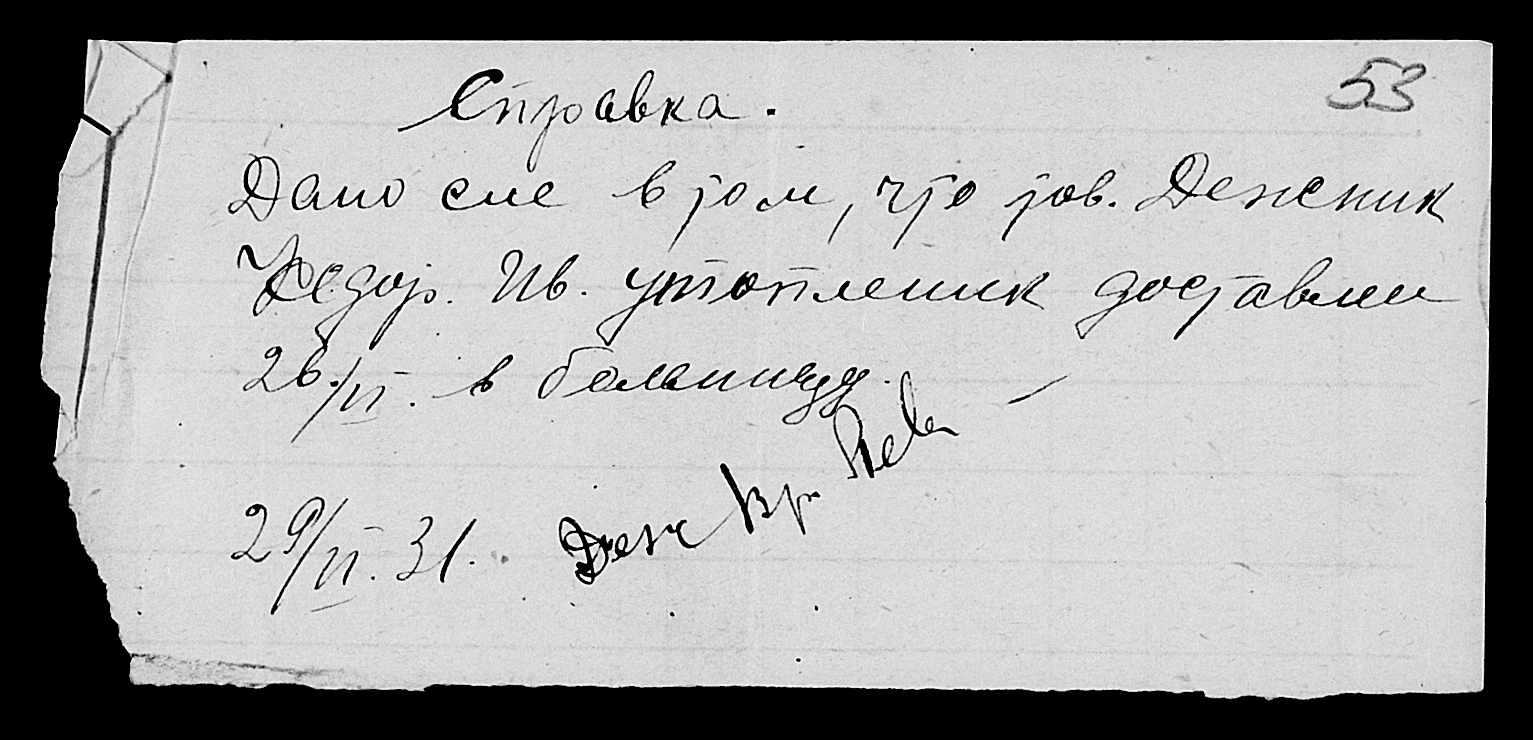 53
Справка.
Дано сие в том, что тов. Дежник
Федор. Ив. утопленик доставлен
26/VI. в больницу.
29/VI. 31. Деж Вр.